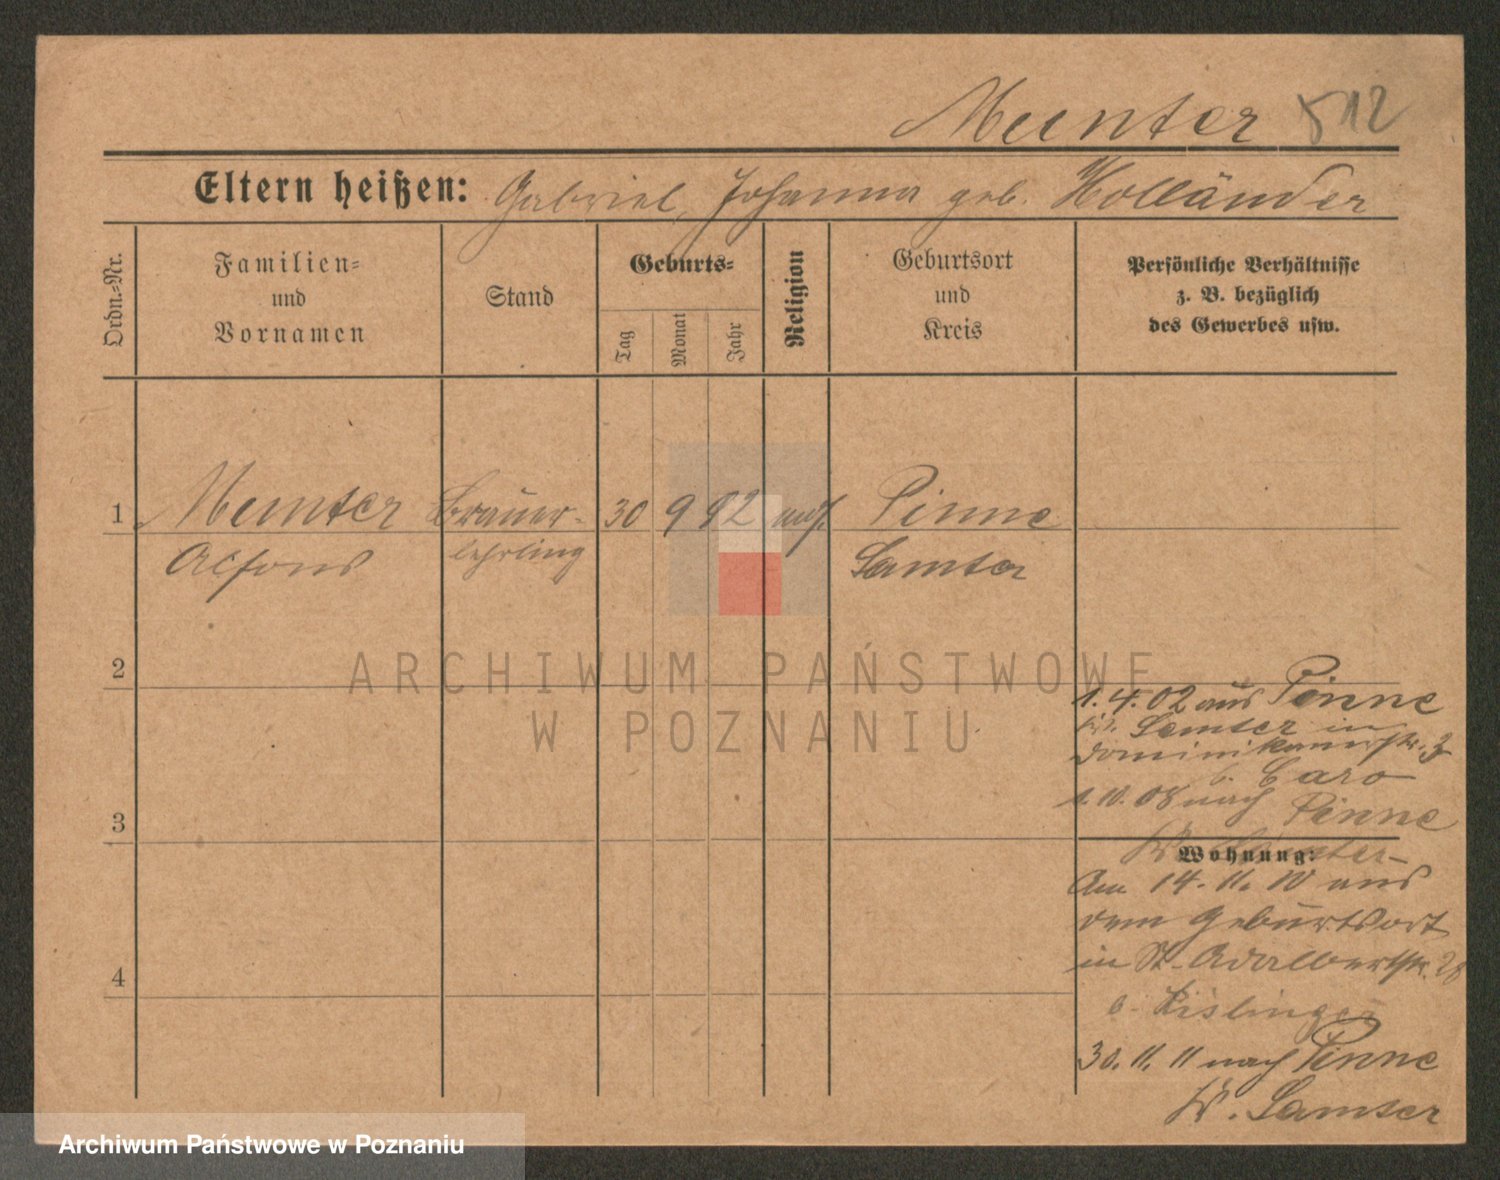 Munter 512
Eltern heißen: Gabriel, Johanna geb. Holländer
Ordn.-Nr.
Familien-
und
Vornamen
Stand
Geburts-
Tag
Monat
Jahr
Religion
Geburtsort
und
Kreis
Persönliche Verhältnisse
z. B. bezüglich
des Gewerbes usw.
1 Munter Brauer- 30 9 92 mos. Pinne
Alfons lehrling Samter
2
ARCHIWUM PAŃSTWOWE
W POZNANIU
1. 4. 02 aus Pinne
Kr. Samter in
Dominikanerstr. 3
b. Caro
1. 10. 08 nach Pinne
3
Kr. Samter
Wohnung:
Am 14. 11. 10 aus
dem Geburtsort
in St. Adalbertstr. 28
b. Kislinger
4
30. 11. 11 nach Pinne
Kr. Samter
Archiwum Państwowe w Poznaniu